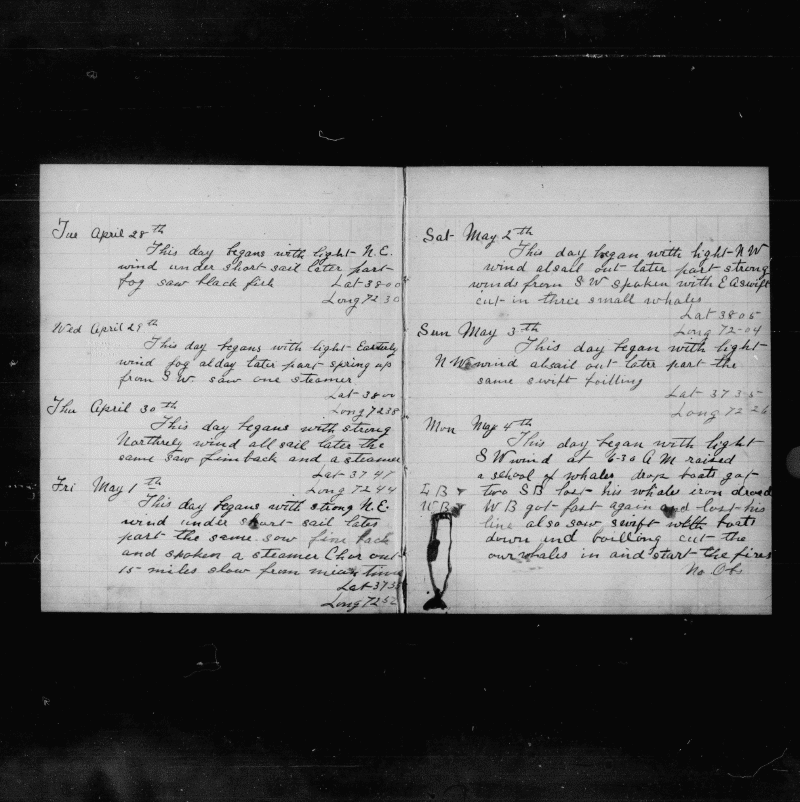 Tue April 28th
This day begans with light N.E.
wind under short sail later part
fog saw black fish Lat 38 00
Long 72 30
Wed April 29th
This day begans with light Easterly
wind fog alday later part spring up
from S W. saw one steamer
Lat 38 00
Long 72 38
Thu April 30th
This day begans with strong
Northrely wind all sail later the
same saw finback and a steamer
Lat 37 47
Long 72 44
Fri May 1th
This day begans with strong N.E.
wind under short sail later
part the same sow fine back
and spoken a steamer Chor out
15 miles slow from mian time
Lat 37 38
Long 72 52
Sat May 2th
This day began with light N W
wind alsail out later part strong
winds from S W spoken with E A swift
cut in three small whales
Lat 38 05
Long 72-04
Sun May 3th
This day began with light
N We wind alsail out later part the
same swift boilling
Lat 37 35
Long 72 26
Mon May 4th
This day began with light
S W wind at 6-30 A M raised
a school of whales drop boats got
L B two S B lost his whale iron drawd
W B W B got fast again and lost his
line also saw swift with boats
down und boilling cut the
our whales in and start the fires
No Obs